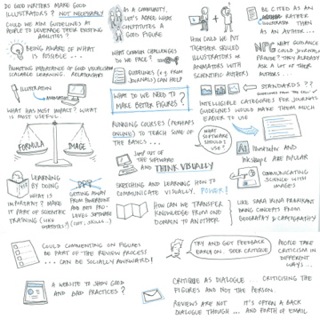 DO GOOD WRITERS MAKE GOOD
ILLUSTRATORS? NOT NECESSARILY
COULD WE AIM GUIDELINES AT
PEOPLE TO LEVERAGE THEIR EXISTING
ABILITIES?
BEING AWARE OF WHAT
IS POSSIBLE...
AS A COMMUNITY,
LET'S AGREE WHAT
CONSTITUTES A
GOOD FIGURE
WHAT COMMON CHALLENGES
DO WE FACE?
GUIDELINES (E.G. FROM
JOURNALS) CAN HELP
HOW COULD WE
PUT TOGETHER SKILLED
ILLUSTRATORS &
ANIMATORS WITH
SCIENTIFIC AUTHORS
BE CITED AS AN
ILLUSTRATOR THAN
AS AN AUTHOR...
WHAT GUIDANCE
COULD JOURNALS
PROVIDE? THEY ALREADY
ASK A LOT OF THEIR
AUTHORS...
ILLUSTRATION
ANIMATION
WHAT HAS MOST IMPACT? WHAT IS
MOST USEFUL?
WHAT DO WE NEED TO
MAKE BETTER FIGURES?
STANDARDS ??
INTELLIGIBLE CATEGORIES FOR JOURNAL
GUIDELINES WOULD MAKE THEM MUCH
EASIER TO USE
FORMULA
IMAGE
RUNNING COURSES (PERHAPS
ONLINE) TO TEACH SOME
OF THE BASICS...
JUMP OUT OF
THE SOFTWARE
AND THINK VISUALLY
WHAT
SOFTWARE
SHOULD I
USE?
Ai
ILLUSTRATOR AND
INKSCAPE ARE POPULAR
LEARNING
BY DOING
WHAT IS
INHERENT? MAKE
IT PART OF SCIENTIFIC
TRAINING
GETTING AWAY
FROM POWERPOINT
AND INTO PRO-
LEVEL SOFTWARE
SKETCHING AND LEARNING HOW TO
COMMUNICATE VISUALLY. POWER!
COMMUNICATING
SCIENCE WITH
IMAGES
HOW CAN WE TRANSFER
KNOWLEDGE FROM ONE
DOMAIN TO ANOTHER?
BRING CONCEPTS FROM
GEOGRAPHY & CARTOGRAPHY
COULD COMMENTING ON FIGURES
BE PART OF THE REVIEW PROCESS?
... CAN BE SOCIALLY AWKWARD!
TRY AND GET FEEDBACK
EARLIER ON. SEEK CRITIQUE.
PEOPLE TAKE
CRITICISM IN
DIFFERENT WAYS...
A WEBSITE TO SHOW GOOD
AND BAD PRACTICES?
CRITIQUE AS DIALOGUE
CRITICISING THE
FIGURES AND NOT THE PERSON
REVIEWS ARE NOT
DIALOGUE THOUGH...
IT'S OFTEN A BACK
AND FORTH OF EMAIL